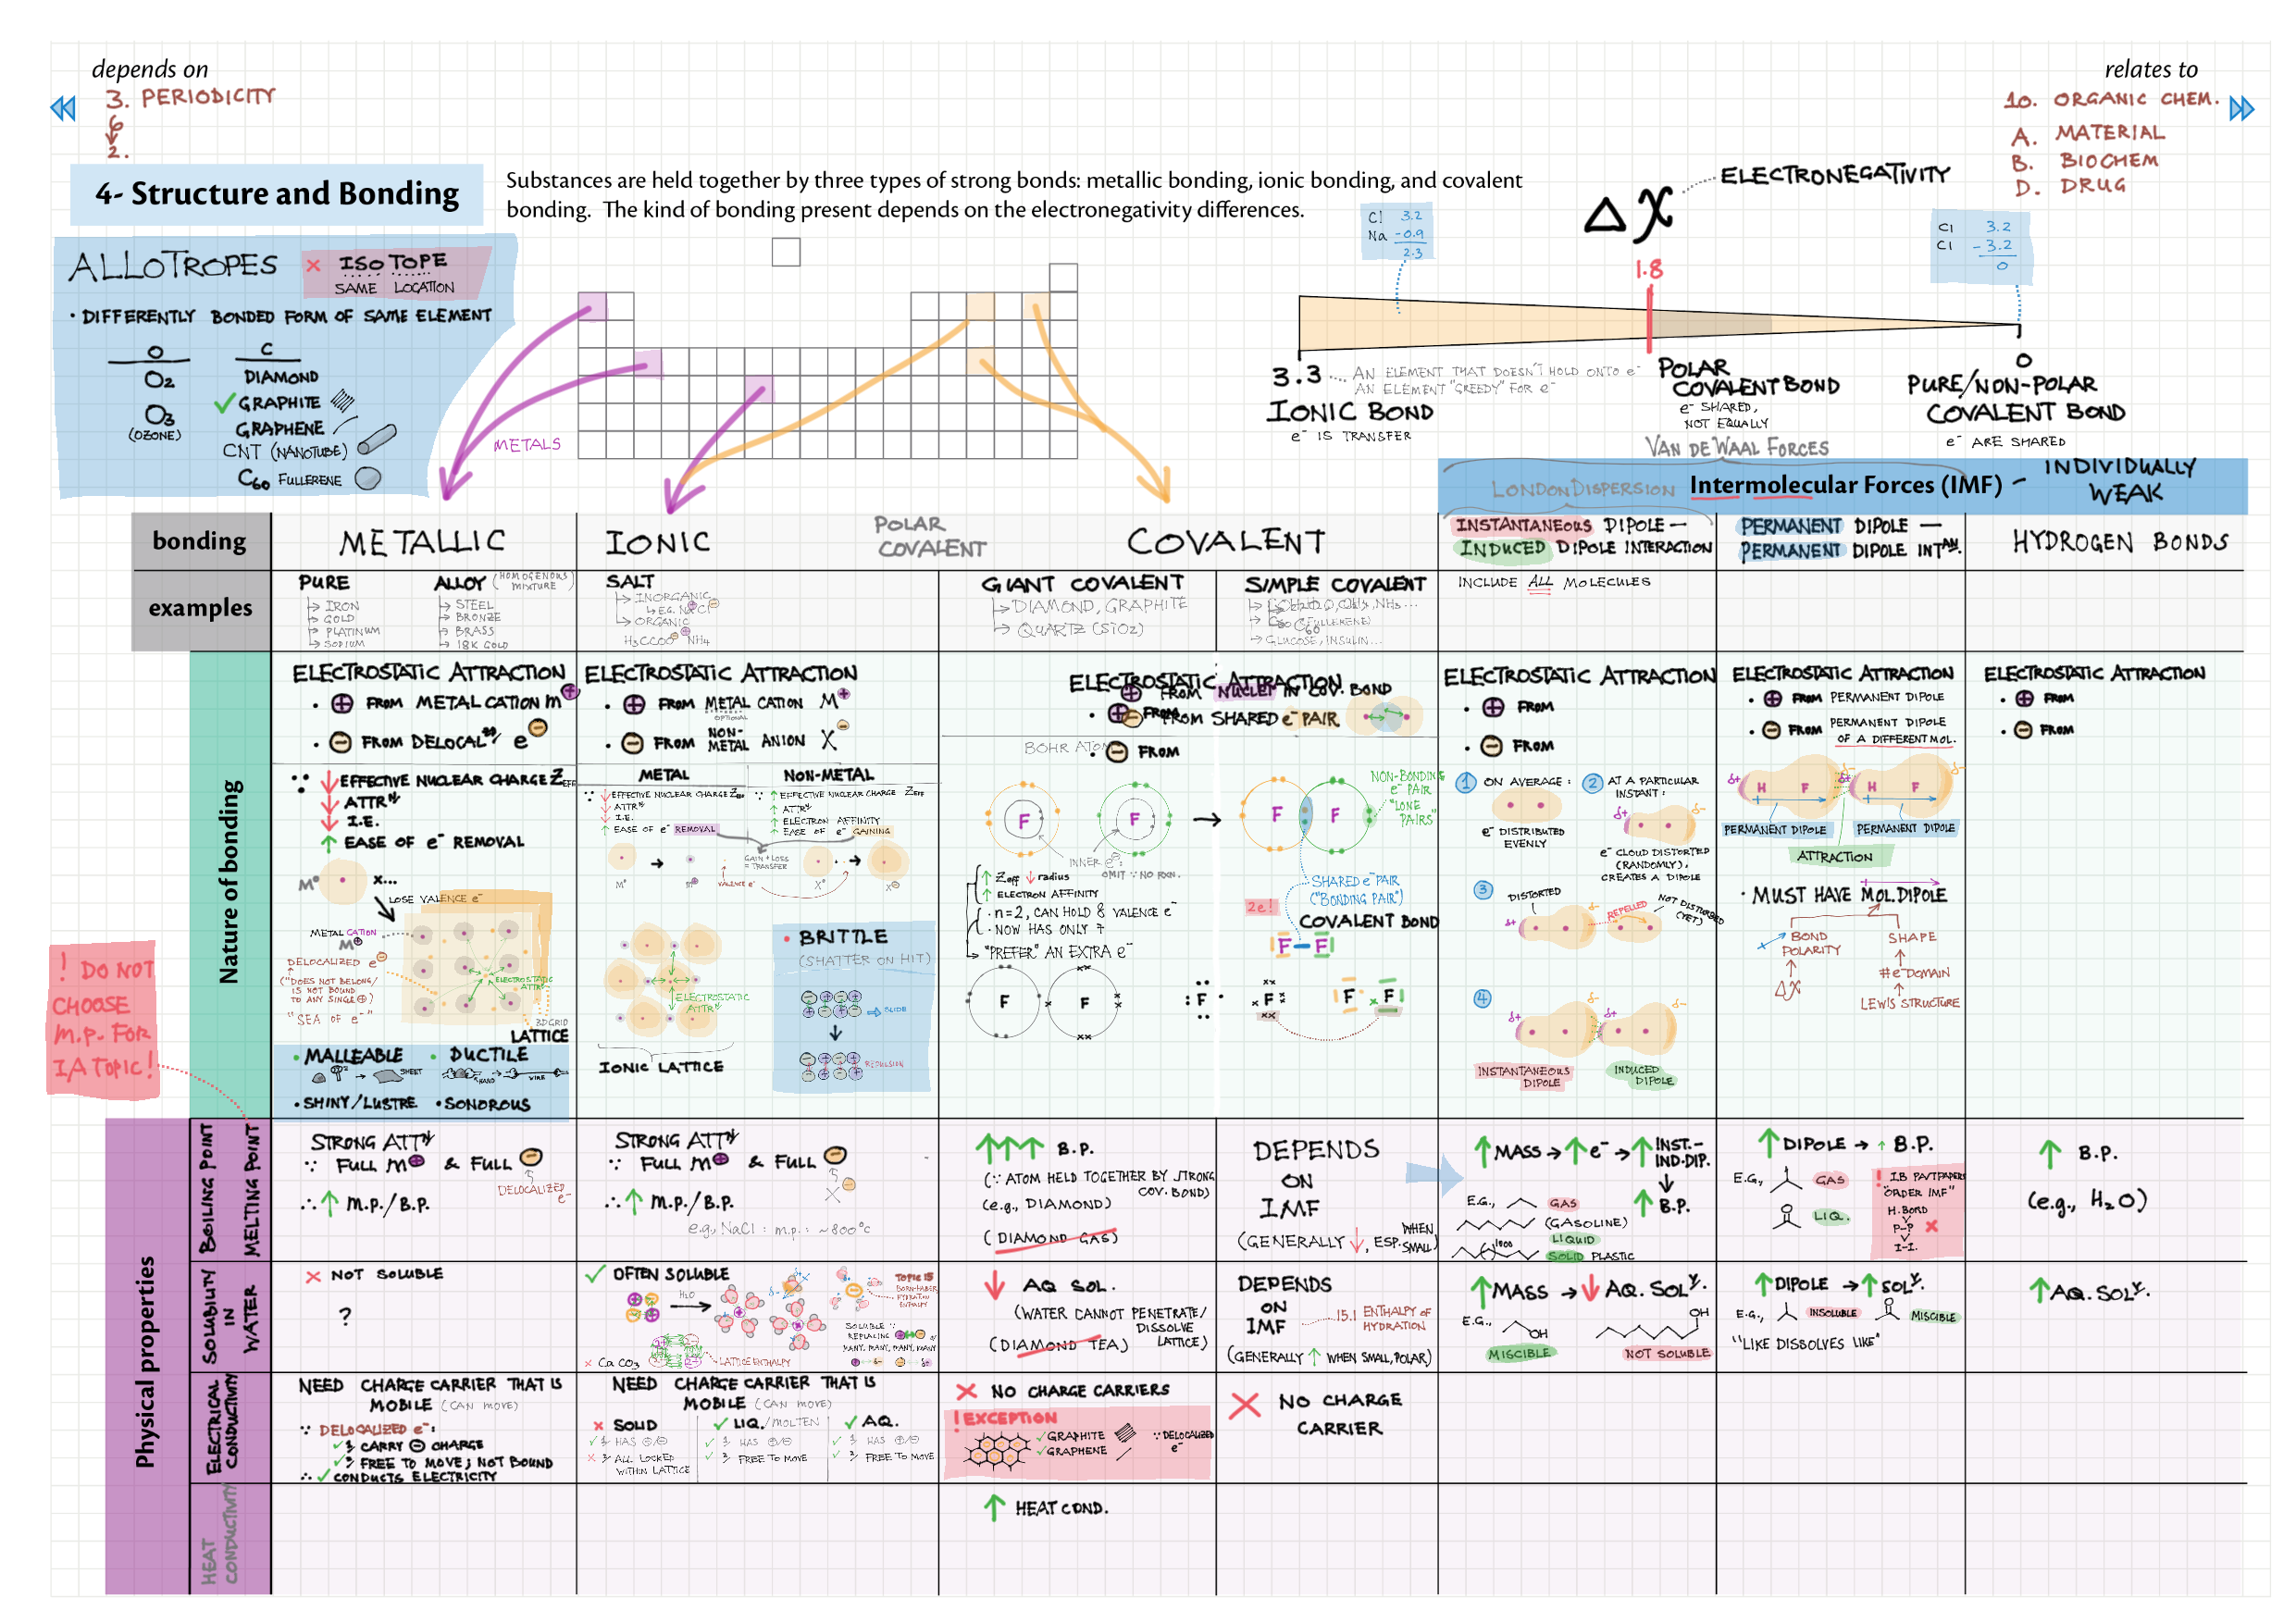 depends on
3. PERIODICITY
6
2.
relates to
10. ORGANIC CHEM.
A. MATERIAL
B. BIOCHEM
D. DRUG
4- Structure and Bonding
Substances are held together by three types of strong bonds: metallic bonding, ionic bonding, and covalent
bonding. The kind of bonding present depends on the electronegativity differences.
ALLOTROPES
× ISOTOPE
SAME LOCATION
• DIFFERENTLY BONDED FORM OF SAME ELEMENT
O
O₂
O₃
(OZONE)
C
DIAMOND
✓ GRAPHITE
GRAPHENE
CNT (NANOTUBE)
C₆₀ FULLERENE
METALS
Cl 3.2
Na -0.9
2.3
ΔX
ELECTRONEGATIVITY
1.8
Cl 3.2
Cl -3.2
0
3.3 .... AN ELEMENT THAT DOESN'T HOLD ONTO e⁻
AN ELEMENT "GREEDY" FOR e⁻
IONIC BOND
e⁻ IS TRANSFER
POLAR
COVALENT BOND
e⁻ SHARED,
NOT EQUALLY
0
PURE/NON-POLAR
COVALENT BOND
e⁻ ARE SHARED
VAN DE WAAL FORCES
LONDON DISPERSION
Intermolecular Forces (IMF) - INDIVIDUALLY
WEAK
bonding
METALLIC
IONIC
POLAR
COVALENT
COVALENT
INSTANTANEOUS DIPOLE —
INDUCED DIPOLE INTERACTION
PERMANENT DIPOLE —
PERMANENT DIPOLE INTᴬᴺ.
HYDROGEN BONDS
examples
PURE
IRON
GOLD
PLATINUM
SODIUM
ALLOY (HOMOGENOUS MIXTURE)
STEEL
BRONZE
BRASS
18K GOLD
SALT
INORGANIC
E.G. Na⊕Cl⊖
ORGANIC
H₃CCOO⊖ ⊕NH₄
GIANT COVALENT
DIAMOND, GRAPHITE
QUARTZ (SiO₂)
SIMPLE COVALENT
NH₃...
(FULLERENE)
GLUCOSE, INSULIN...
INCLUDE ALL MOLECULES
Nature of bonding
ELECTROSTATIC ATTRACTION
• ⊕ FROM METAL CATION M⊕
• ⊖ FROM DELOCALᶻᴰ e⊖
∵ ↓ EFFECTIVE NUCLEAR CHARGE ZEFF
↓ ATTRᴺ
↓ I.E.
↑ EASE OF e⁻ REMOVAL
M⁰
x...
LOSE VALENCE e⁻
METAL CATION
M⊕
DELOCALIZED e⊖
("DOES NOT BELONG/
IS NOT BOUND
TO ANY SINGLE ⊕)
"SEA OF e⁻"
ELECTROSTATIC
ATTRᴺ
3D GRID
LATTICE
• MALLEABLE
• DUCTILE
SHEET
HAND
WIRE
• SHINY/LUSTRE
• SONOROUS
! DO NOT
CHOOSE
M.P. FOR
IA TOPIC!
ELECTROSTATIC ATTRACTION
• ⊕ FROM METAL CATION M⊕
OPTIONAL
• ⊖ FROM NON-METAL ANION X⊖
METAL
∵ ↓ EFFECTIVE NUCLEAR CHARGE ZEFF
↓ ATTRᴺ
↓ I.E.
↑ EASE OF e⁻ REMOVAL
NON-METAL
∵ ↑ EFFECTIVE NUCLEAR CHARGE ZEFF
↑ ATTRᴺ
↑ ELECTRON AFFINITY
↑ EASE OF e⁻ GAINING
GAIN + LOSS
= TRANSFER
M⁰
M⊕
VALENCE e⁻
X⁰
X⊖
ELECTROSTATIC
ATTRᴺ
IONIC LATTICE
• BRITTLE
(SHATTER ON HIT)
SLIDE
REPULSION
ELECTROSTATIC ATTRACTION
⊕ FROM NUCLEI IN COV. BOND
⊖ FROM SHARED e⁻ PAIR
• ⊕ FROM
• ⊖ FROM
BOHR ATOM
F
F
F
F
NON-BONDING
e⁻ PAIR
"LONE
PAIRS"
INNER e⁻:
OMIT ∵ NO RXN.
↑ Zeff ↓ radius
↑ ELECTRON AFFINITY
• n=2, CAN HOLD 8 VALENCE e⁻
• NOW HAS ONLY 7
"PREFER" AN EXTRA e⁻
SHARED e⁻ PAIR
("BONDING PAIR")
2e!
COVALENT BOND
F–F
F
F
F
F
F
F
ELECTROSTATIC ATTRACTION
• ⊕ FROM
• ⊖ FROM
① ON AVERAGE:
e⁻ DISTRIBUTED
EVENLY
② AT A PARTICULAR
INSTANT:
δ+
δ-
e⁻ CLOUD DISTORTED
(RANDOMLY).
CREATES A DIPOLE
③ DISTORTED
REPELLED
NOT DISTURBED
(YET)
④
INSTANTANEOUS
DIPOLE
INDUCED
DIPOLE
ELECTROSTATIC ATTRACTION
• ⊕ FROM PERMANENT DIPOLE
• ⊖ FROM PERMANENT DIPOLE
OF A DIFFERENT MOL.
δ+ H F δ- δ+ H F δ-
PERMANENT DIPOLE
PERMANENT DIPOLE
ATTRACTION
• MUST HAVE MOL. DIPOLE
BOND
POLARITY
ΔX
SHAPE
#e⁻ DOMAIN
LEWIS STRUCTURE
ELECTROSTATIC ATTRACTION
• ⊕ FROM
• ⊖ FROM
Physical properties
BOILING POINT
MELTING POINT
STRONG ATTᴺ
∵ FULL M⊕ & FULL ⊖
DELOCALIZED
e⁻
∴ ↑ M.P./B.P.
STRONG ATTᴺ
∵ FULL M⊕ & FULL ⊖
X⊖
∴ ↑ M.P./B.P.
e.g., NaCl : m.p.: ~800°C
↑↑↑ B.P.
(∵ ATOM HELD TOGETHER BY STRONG
COV. BOND)
(e.g., DIAMOND)
(DIAMOND GAS)
DEPENDS
ON
IMF
(GENERALLY ↓, ESP. WHEN SMALL)
↑ MASS → ↑ e⁻ → ↑ INST.-
IND. DIP.
↑ B.P.
E.G., GAS
(GASOLINE)
LIQUID
1000
SOLID PLASTIC
↑ DIPOLE → ↑ B.P.
E.G., GAS
LIQ.
! I.B PASTPAPERS
"ORDER IMF"
H. BOND
P-P ×
I-I.
↑ B.P.
(e.g., H₂O)
SOLUBILITY
IN
WATER
× NOT SOLUBLE
?
✓ OFTEN SOLUBLE
H₂O
TOPIC 15
BORN-HABER
HYDRATION
ENTHALPY
SOLUBLE ∵
REPLACING
MANY, MANY, MANY, MANY
× CaCO₃
LATTICE ENTHALPY
↓ AQ SOL.
(WATER CANNOT PENETRATE/
DISSOLVE
LATTICE)
(DIAMOND TEA)
DEPENDS
ON
IMF
15.1 ENTHALPY OF
HYDRATION
(GENERALLY ↑ WHEN SMALL, POLAR)
↑ MASS → ↓ AQ. SOLᵞ.
E.G., OH
MISCIBLE
OH
NOT SOLUBLE
↑ DIPOLE → ↑ SOLᵞ.
E.G., INSOLUBLE
MISCIBLE
"LIKE DISSOLVES LIKE"
↑ AQ. SOLᵞ.
ELECTRICAL
CONDUCTIVITY
NEED CHARGE CARRIER THAT IS
MOBILE (CAN MOVE)
∵ DELOCALIZED e⁻:
✓ 1) CARRY ⊖ CHARGE
✓ 2) FREE TO MOVE; NOT BOUND
∴ ✓ CONDUCTS ELECTRICITY
NEED CHARGE CARRIER THAT IS
MOBILE (CAN MOVE)
× SOLID
✓ 1) HAS ⊕/⊖
× 2) ALL LOCKED
WITHIN LATTICE
✓ LIQ./MOLTEN
✓ 1) HAS ⊕/⊖
✓ 2) FREE TO MOVE
✓ AQ.
✓ 1) HAS ⊕/⊖
✓ 2) FREE TO MOVE
× NO CHARGE CARRIERS
! EXCEPTION
✓ GRAPHITE
✓ GRAPHENE
∵ DELOCALIZED
e⁻
× NO CHARGE
CARRIER
HEAT
CONDUCTIVITY
↑ HEAT COND.